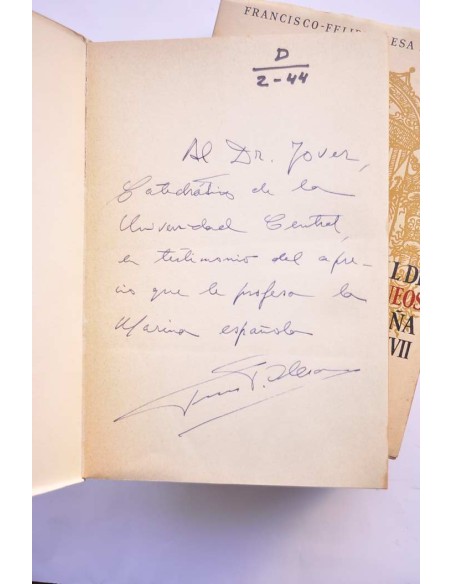 FRANCISCO-FELIPE
ESA
D
2-44
Al Dr. Jover,
Catedrático de la
Universidad Central,
en testimonio del apre-
cio que le profesa la
Marina española
L DE
UEOS
ÑA
VII